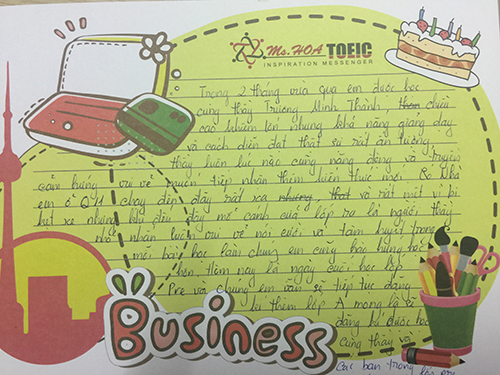 Ms. HOA TOEIC
INSPIRATION MESSENGER
Trong 2 tháng vừa qua em được học
cùng thầy Trương Minh Thành, chiều
cao khiêm tốn nhưng khả năng giảng dạy
và cách diễn đạt thật sự rất ấn tượng.
thầy luôn lúc nào cũng năng động và truyền
cảm hứng vui vẻ muốn tiếp nhận thêm kiến thức mới. Dù nhà
em ở Q11 chạy đến đây rất xa và rất mệt vì bị
kẹt xe nhưng khi đến đây mở cánh cửa lớp ra là người thầy
nhỏ nhắn luôn vui vẻ nói cười và tâm huyết trong
mỗi bài học làm chúng em cũng hào hứng học
hơn. Hôm nay là ngày cuối học lớp
Pre và chúng em vẫn sẽ tiếp tục đăng
kí thêm lớp A mong là sẽ
đăng kí được học
cùng thầy và
các bạn trong lớp
Business